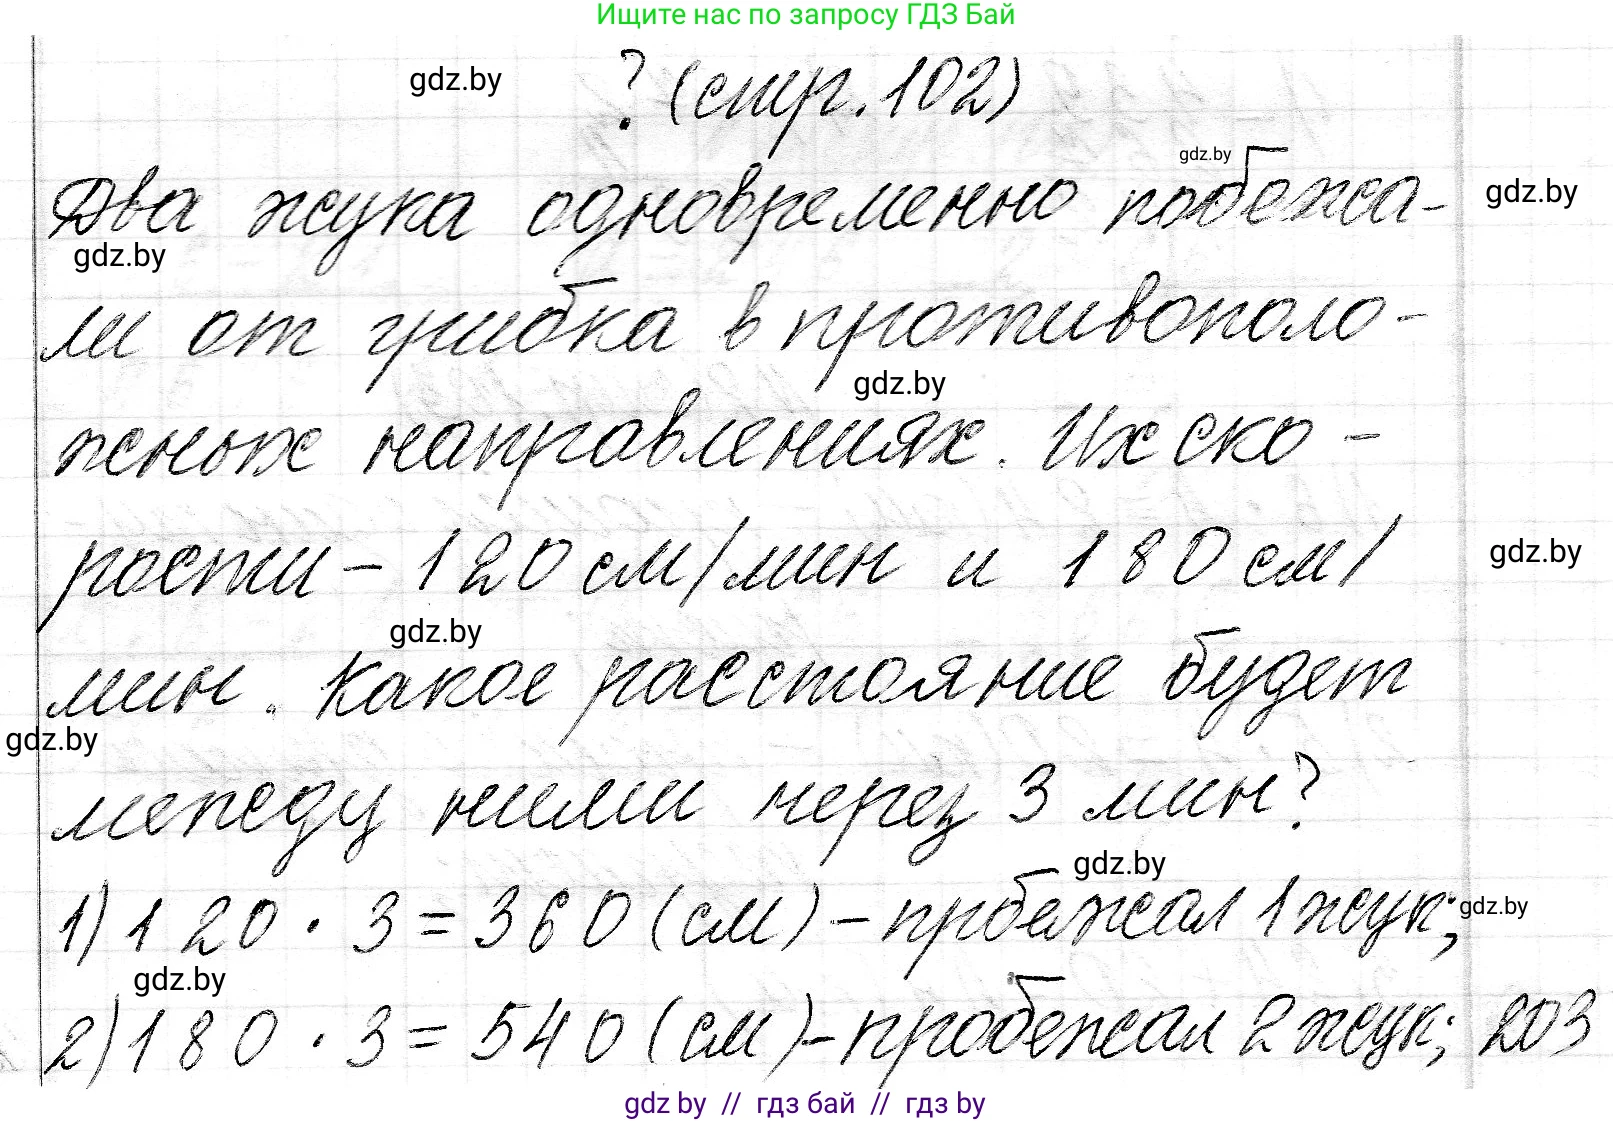 Ищите нас по запросу ГДЗ Бай
gdz.by
? (стр. 102)
gdz.by
Два жука одновременно побежа-
gdz.by
gdz.by
ли от грибка в противополо-
gdz.by
жных направлениях. Их ско-
рости - 120 см/мин и 180 см/
gdz.by
gdz.by
мин. Какое расстояние будет
gdz.by
между ними через 3 мин?
gdz.by
1) 120 · 3 = 360 (см) - пробежал 1 жук;
gdz.by
gdz.by
2) 180 · 3 = 540 (см) - пробежал 2 жук; 203
gdz by // гдз бай // гдз by